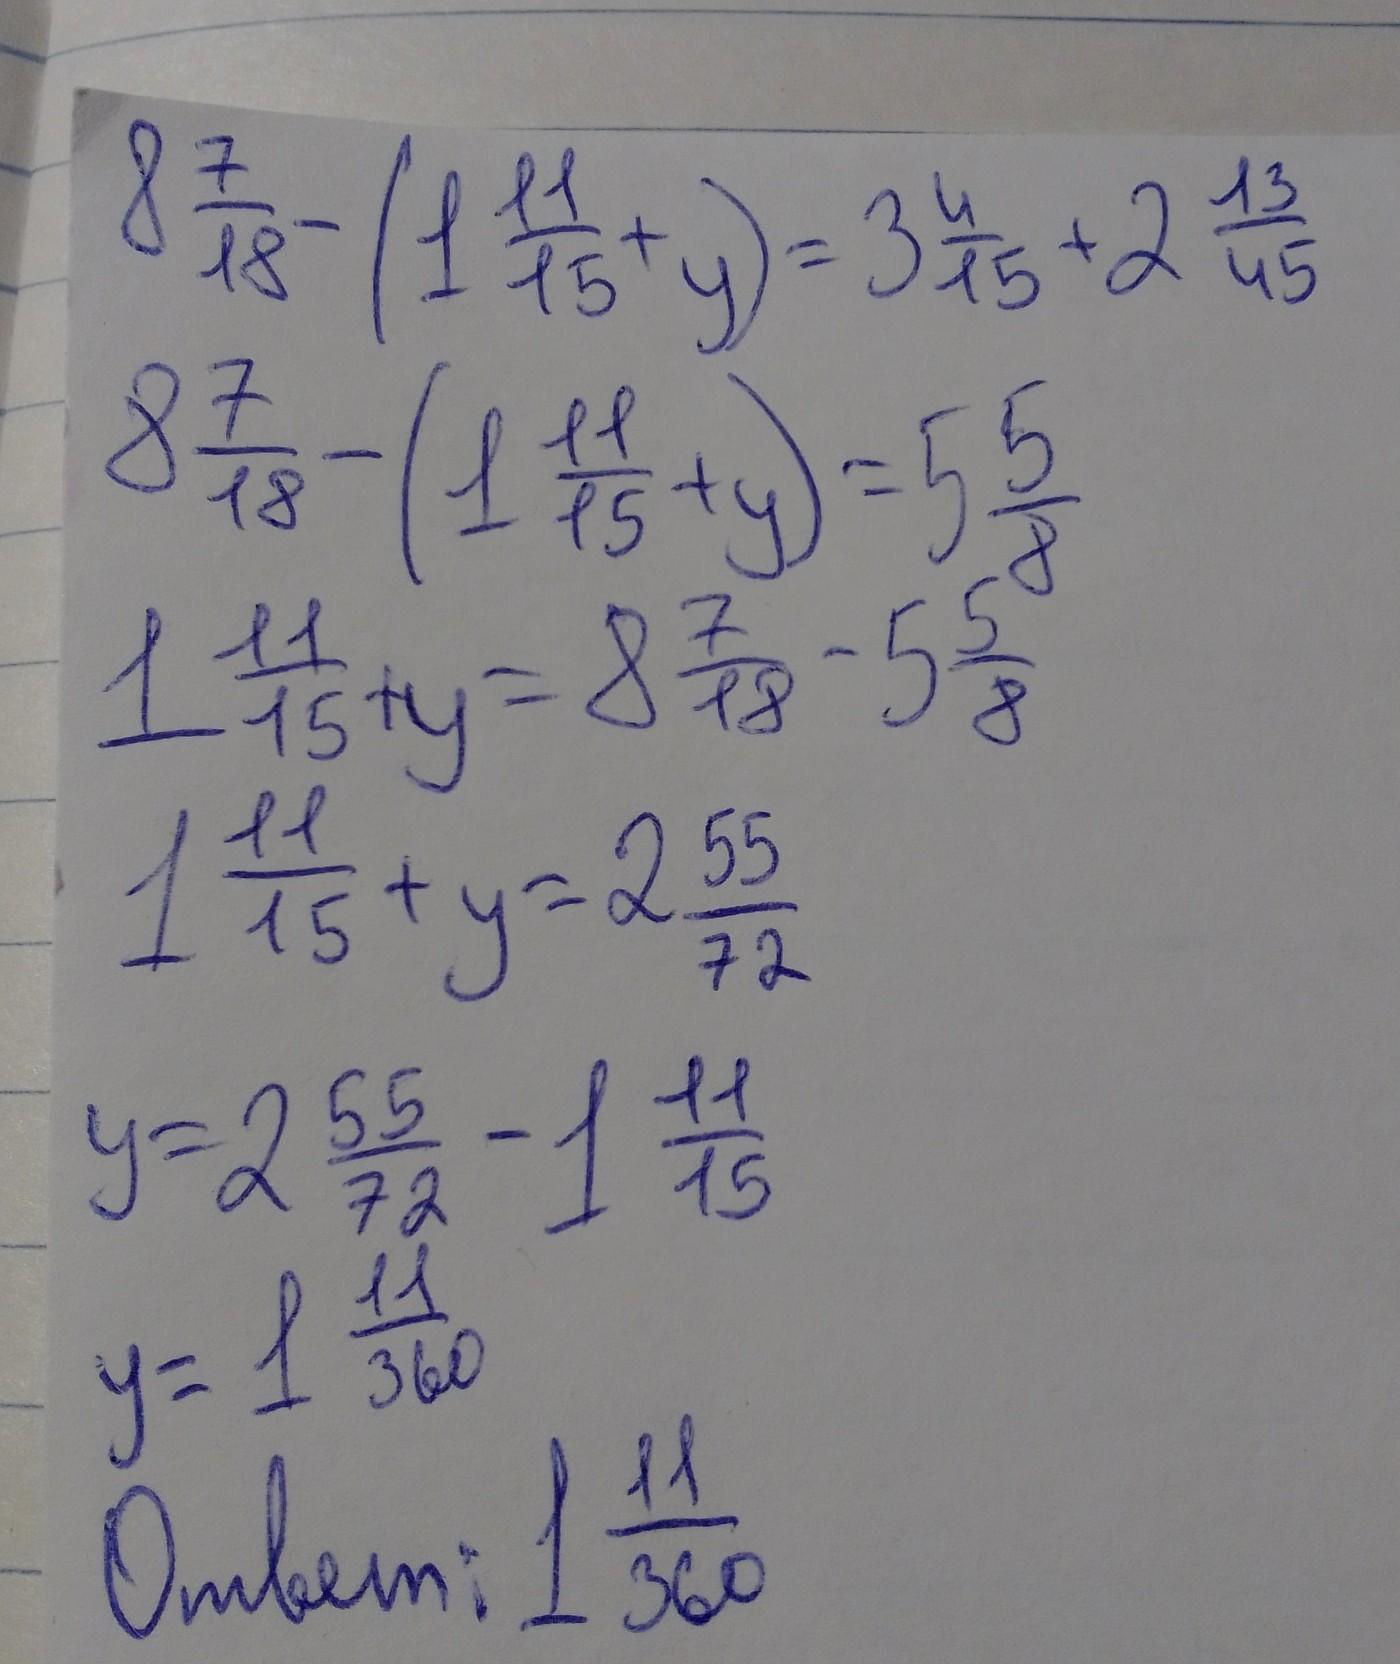 8 7/18 - (1 11/15 + y) = 3 4/15 + 2 13/45
8 7/18 - (1 11/15 + y) = 5 5/8
1 11/15 + y = 8 7/18 - 5 5/8
1 11/15 + y = 2 55/72
y = 2 55/72 - 1 11/15
y = 1 11/360
Ответ: 1 11/360